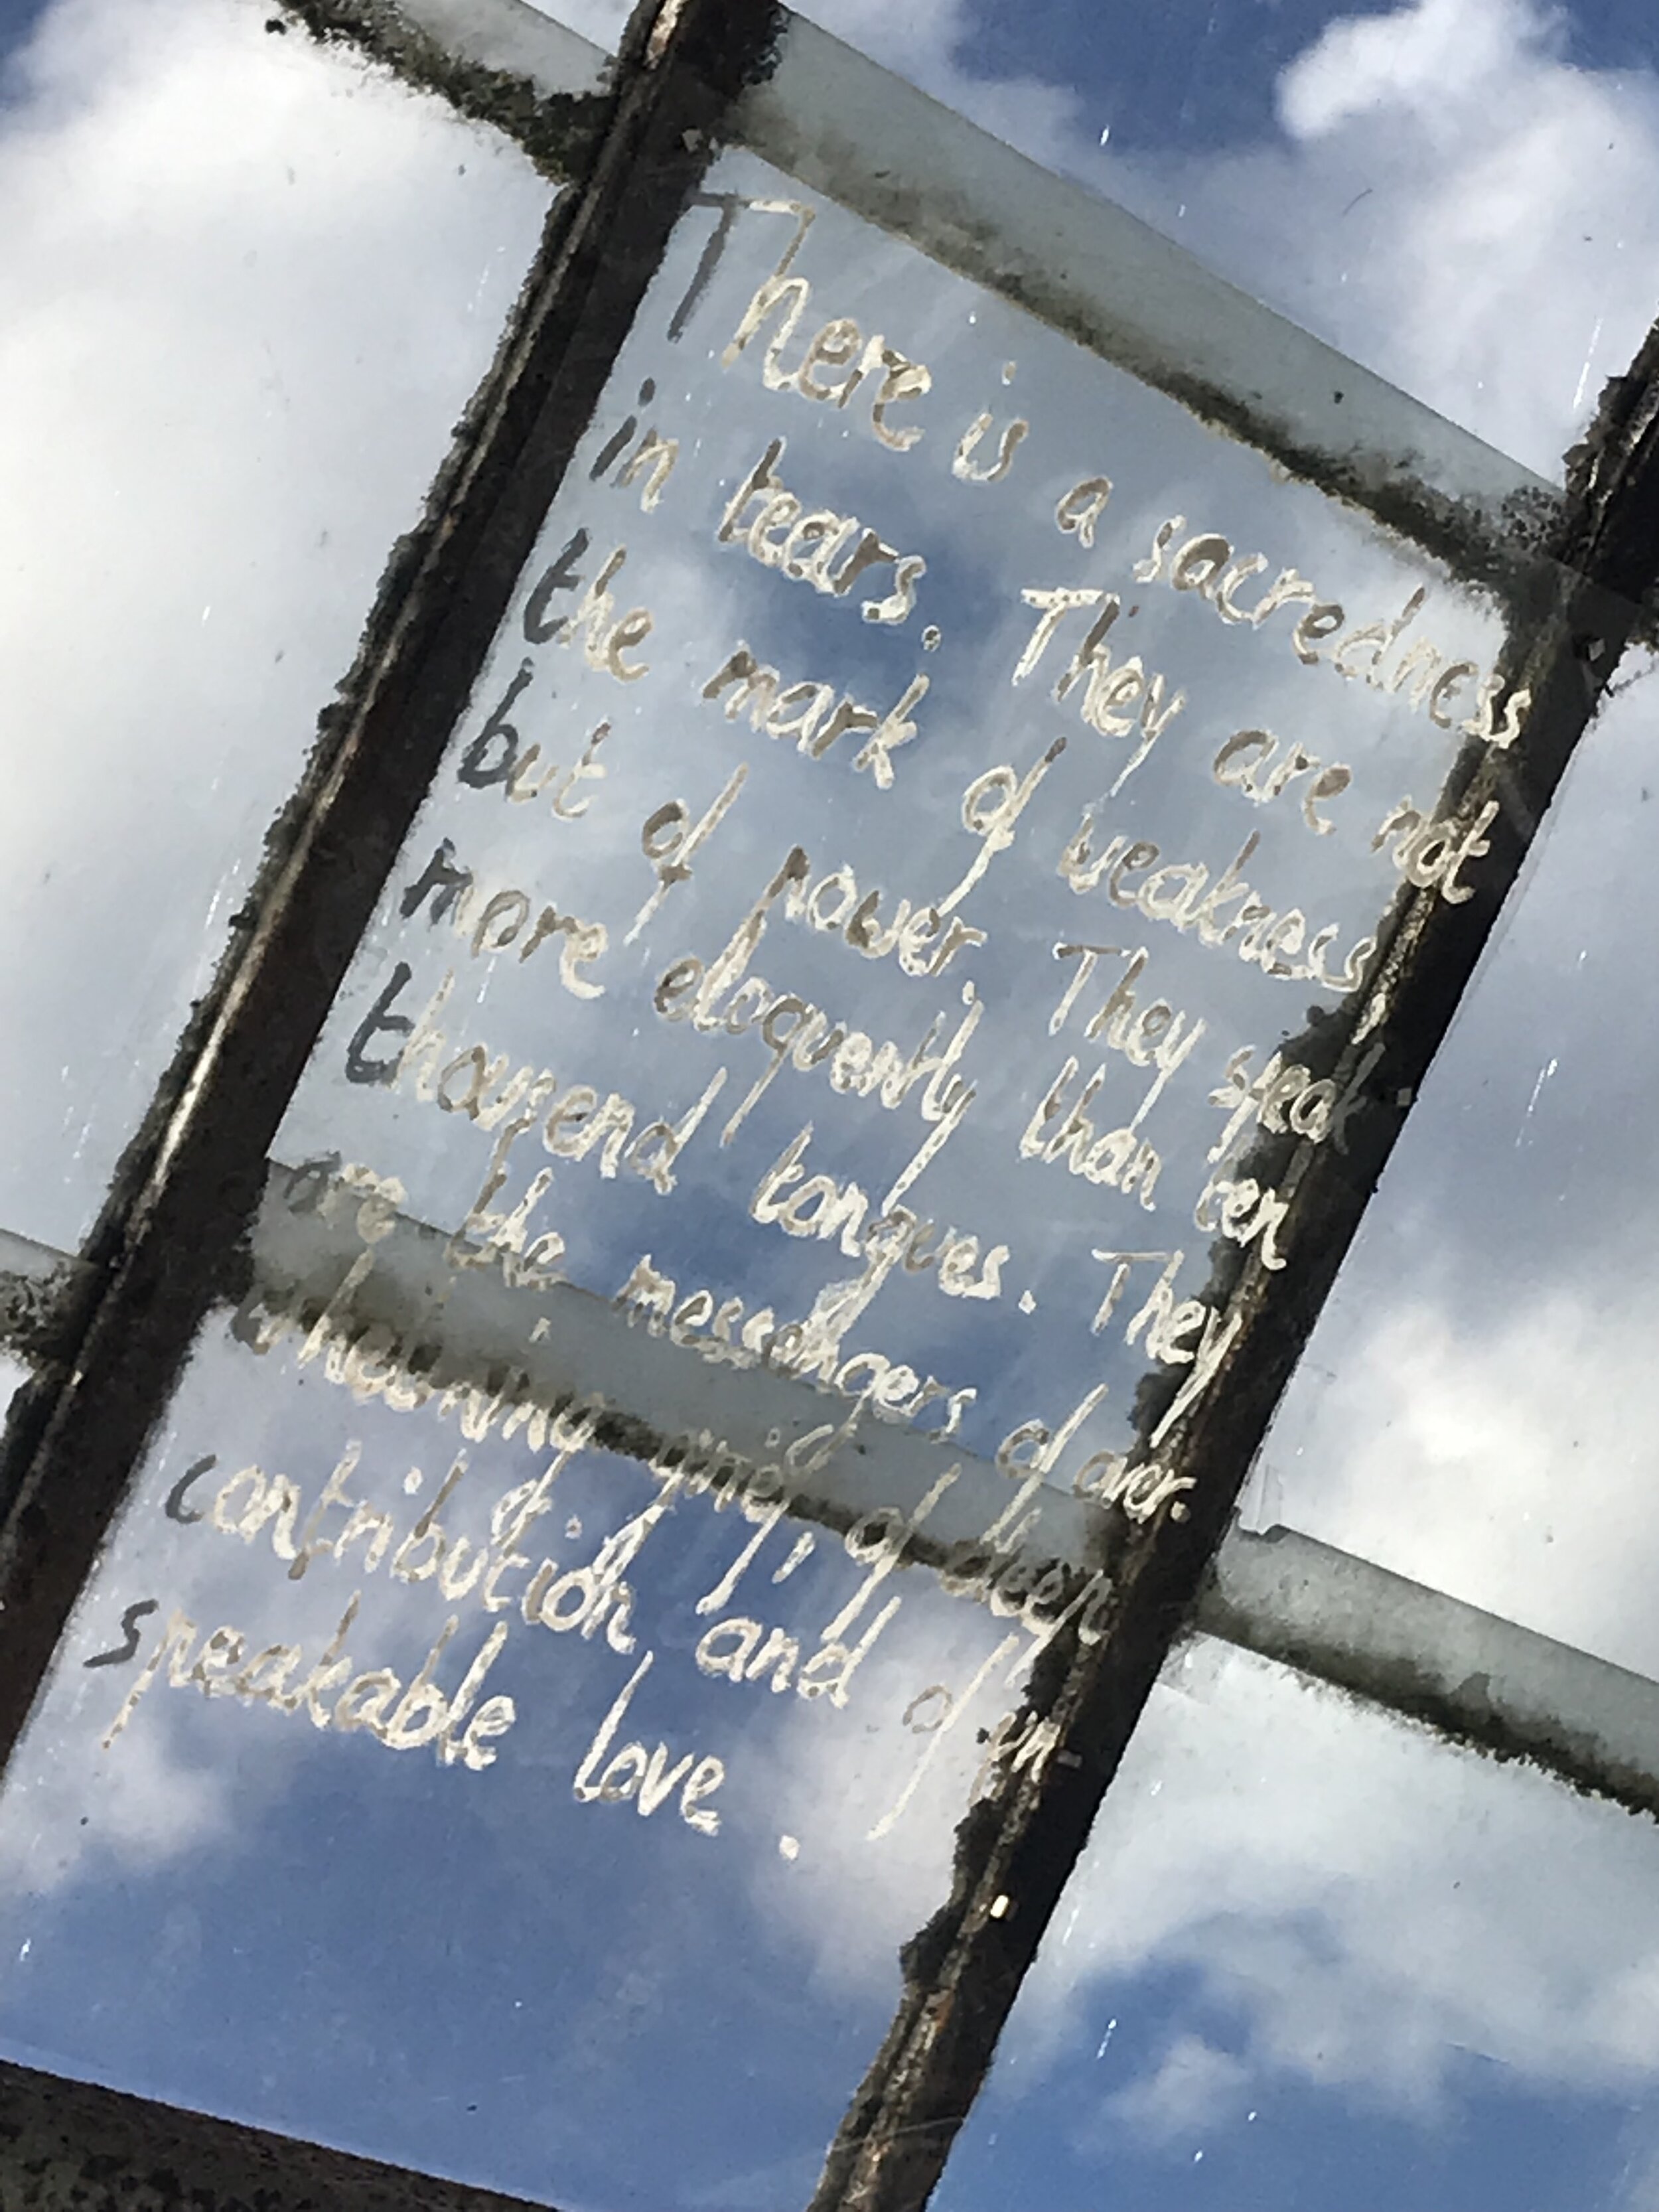 There is a sacredness
in tears. They are not
the mark of weakness,
but of power. They speak
more eloquently than ten
thousend tongues. They
are the messengers of over-
whelming grief, of deep
contribution and of un-
speakable love.